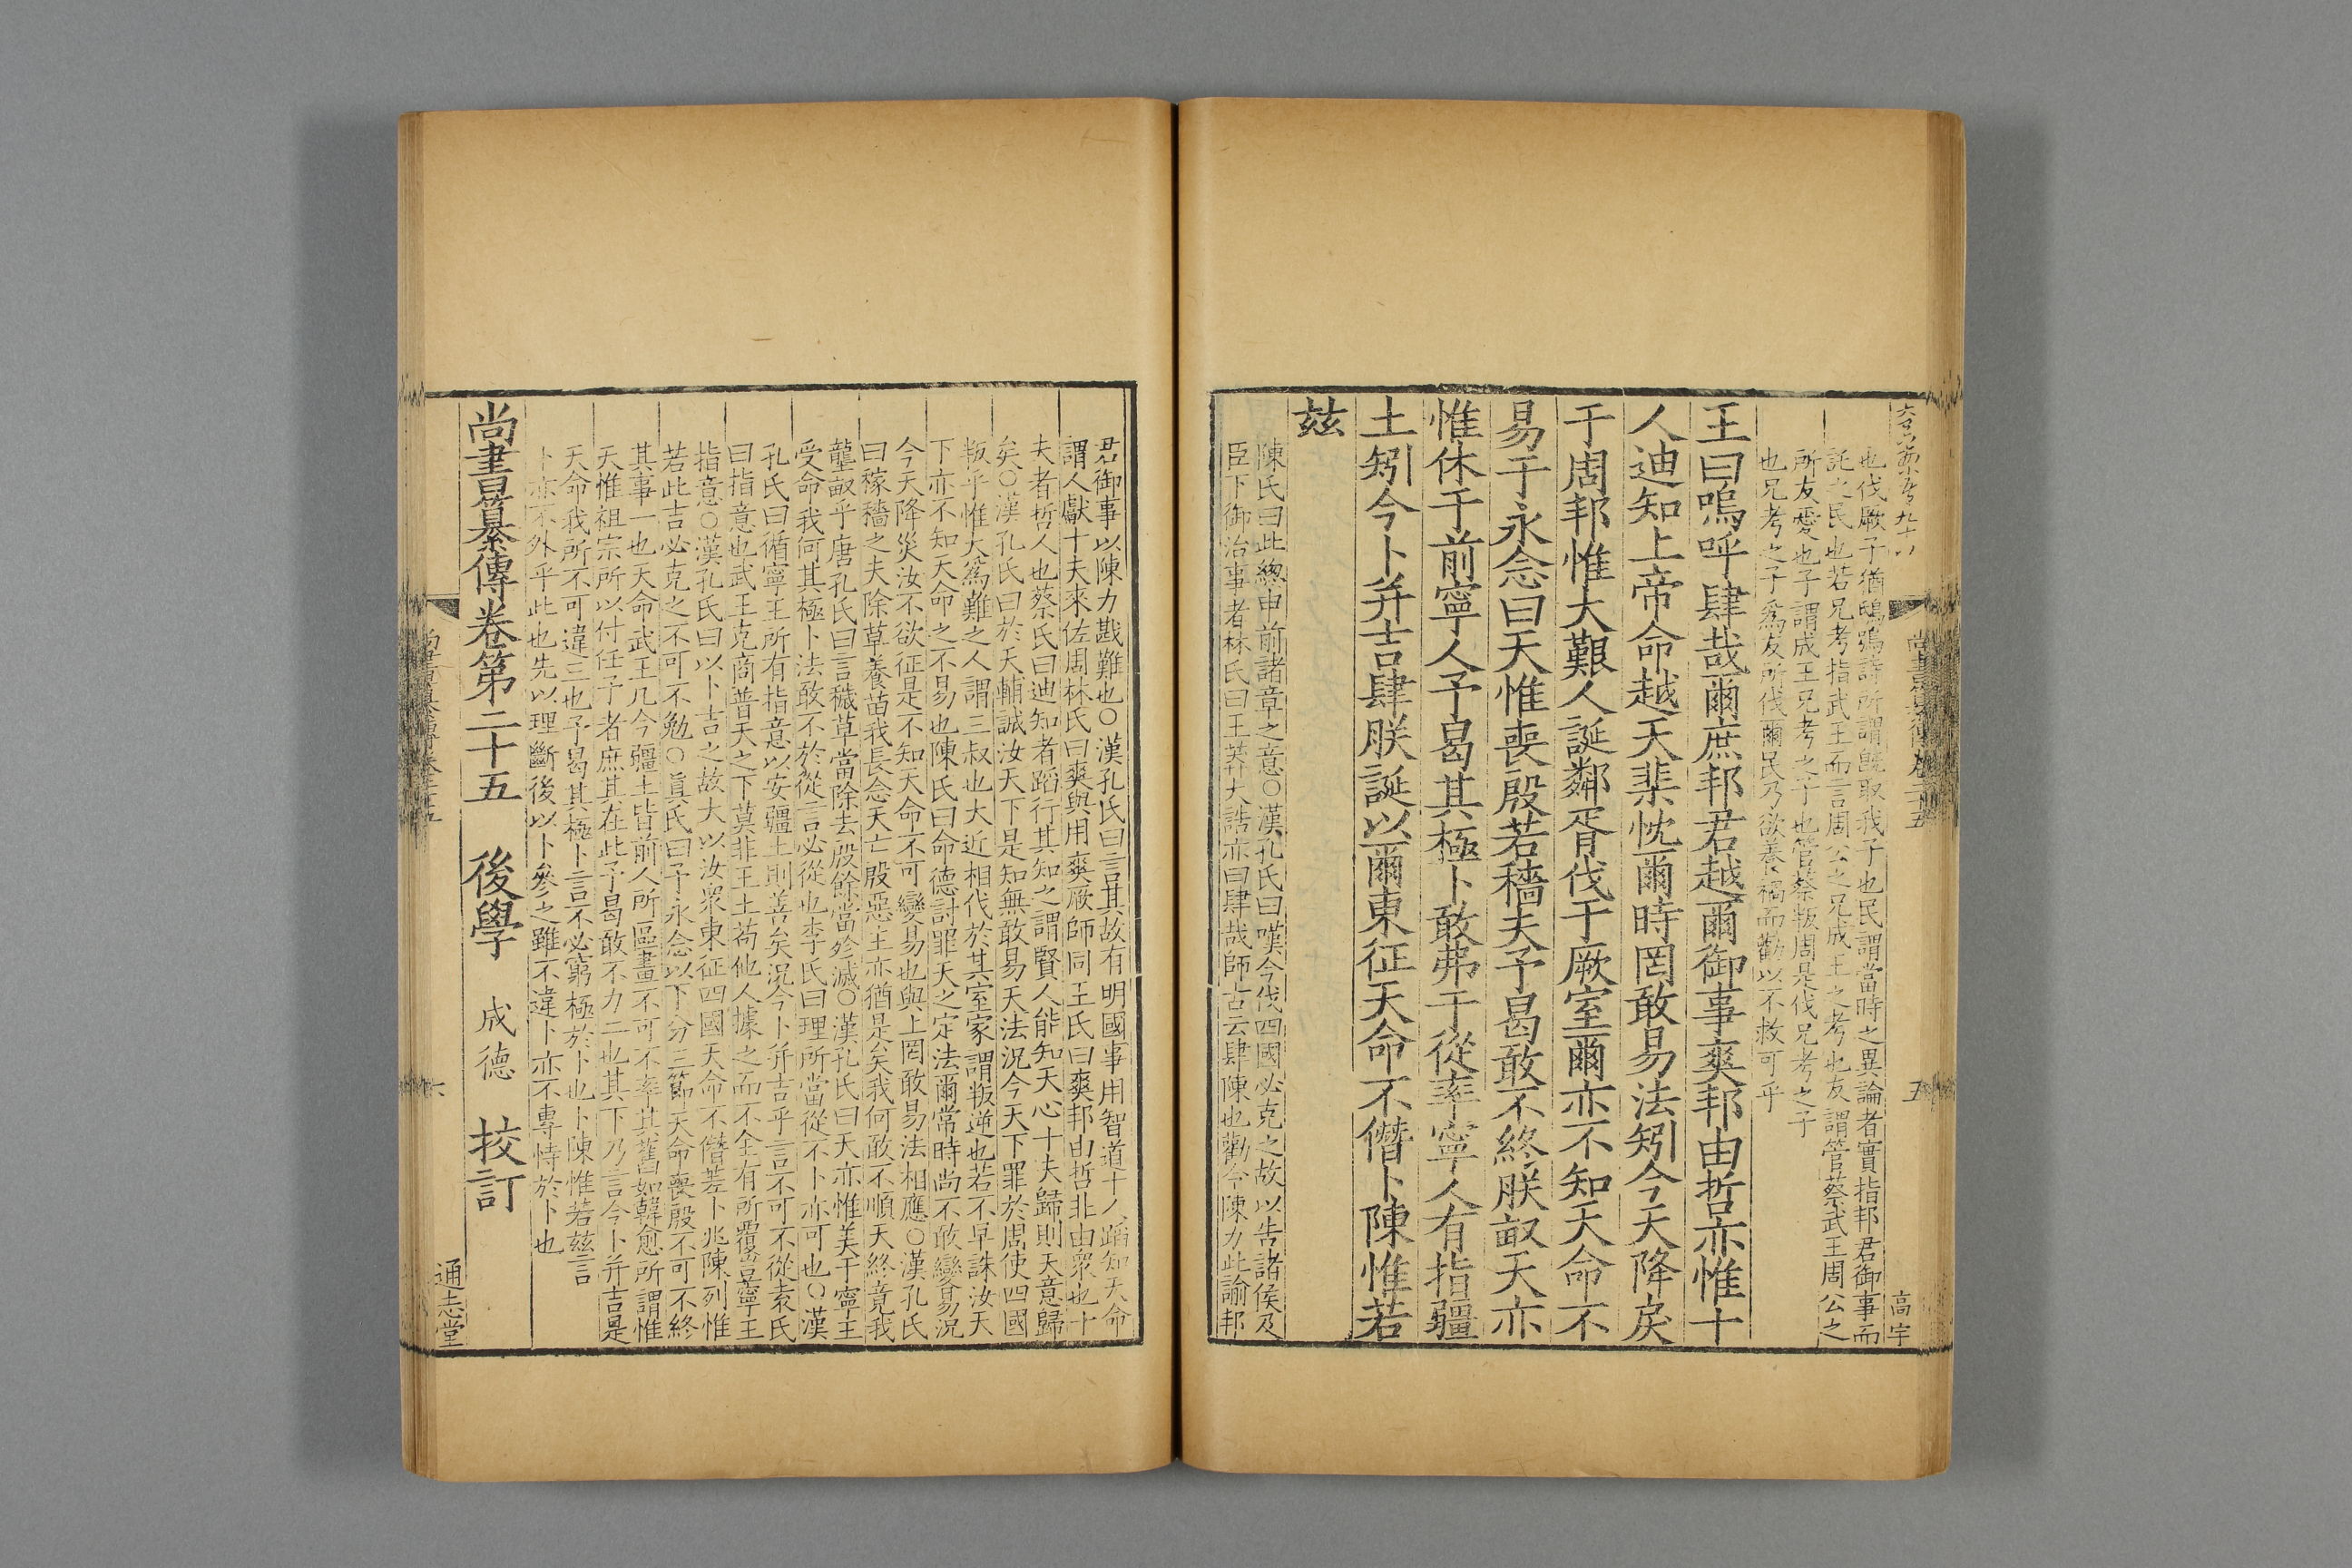 也伐厥子猶鴟鴞詩所謂旣取我子也民謂當時之異論者實指邦君御事而
託之民也若兄考指武王而言周公之兄成王之考也友謂管蔡武王周公之
所友愛也子謂成王兄考之子也管蔡叛周是伐兄考之子
也兄考之子爲友所伐爾民乃欲養禍而勸以不救可乎
王曰嗚呼肆哉爾庶邦君越爾御事爽邦由哲亦惟十
人迪知上帝命越天棐忱爾時罔敢易法矧今天降戾
于周邦惟大艱人誕鄰胥伐于厥室爾亦不知天命不
易予永念曰天惟喪殷若穡夫予曷敢不終朕畝天亦
惟休于前寧人予曷其極卜敢弗于從率寧人有指疆
土矧今卜并吉肆朕誕以爾東征天命不僭卜陳惟若
茲
陳氏曰此緫申前諸章之意○漢孔氏曰嘆今伐四國必克之故以告諸侯及
臣下御治事者林氏曰王莽大誥亦曰肆哉師古云肆陳也勸令陳力此諭邦
高宇
五
君御事以陳力戡難也○漢孔氏曰言其故有明國事用智道十人蹈知天命
謂人獻十夫來佐周林氏曰爽與用爽厥師同王氏曰爽邦由哲非由衆也十
夫者哲人也蔡氏曰迪知者蹈行其知之謂賢人能知天心十夫歸則天意歸
矣○漢孔氏曰於天輔誠汝天下是知無敢易天法況今天下罪於周使四國
叛乎惟大爲難之人謂三叔也大近相伐於其室家謂叛逆也若不早誅汝天
下亦不知天命之不易也陳氏曰命德討罪天之定法爾常時尚不敢變易況
今天降災汝不欲征是不知天命不可變易也與上罔敢易法相應○漢孔氏
曰稼穡之夫除草養苗我長念天亡殷惡主亦猶是矣我何敢不順天終竟我
壟畝乎唐孔氏曰言穢草當除去殷餘當殄滅○漢孔氏曰天亦惟美于寧王
受命我何其極卜法敢不於從言必從也李氏曰理所當從不卜亦可也○漢
孔氏曰循寧王所有指意以安疆土則善矣況今卜并吉乎言不可不從袁氏
曰指意也武王克商普天之下莫非王土苟他人據之而不全有所覆豈寧王
指意○漢孔氏曰以卜吉之故大以汝衆東征四國天命不僭差卜兆陳列惟
若此吉必克之不可不勉○眞氏曰予永念以下分三節天命喪殷不可不終
其事一也天命武王凡今疆土皆前人所區畫不可不率其舊如韓愈所謂惟
天惟祖宗所以付任予者庶其在此予曷敢不力二也其下乃言今卜并吉是
天命我所不可違三也予曷其極卜言不必窮極於卜也卜陳惟若茲言
卜亦不外乎此也先以理斷後以卜參之雖不違卜亦不專恃於卜也
尚書纂傳卷第二十五　後學　成德　校訂
通志堂